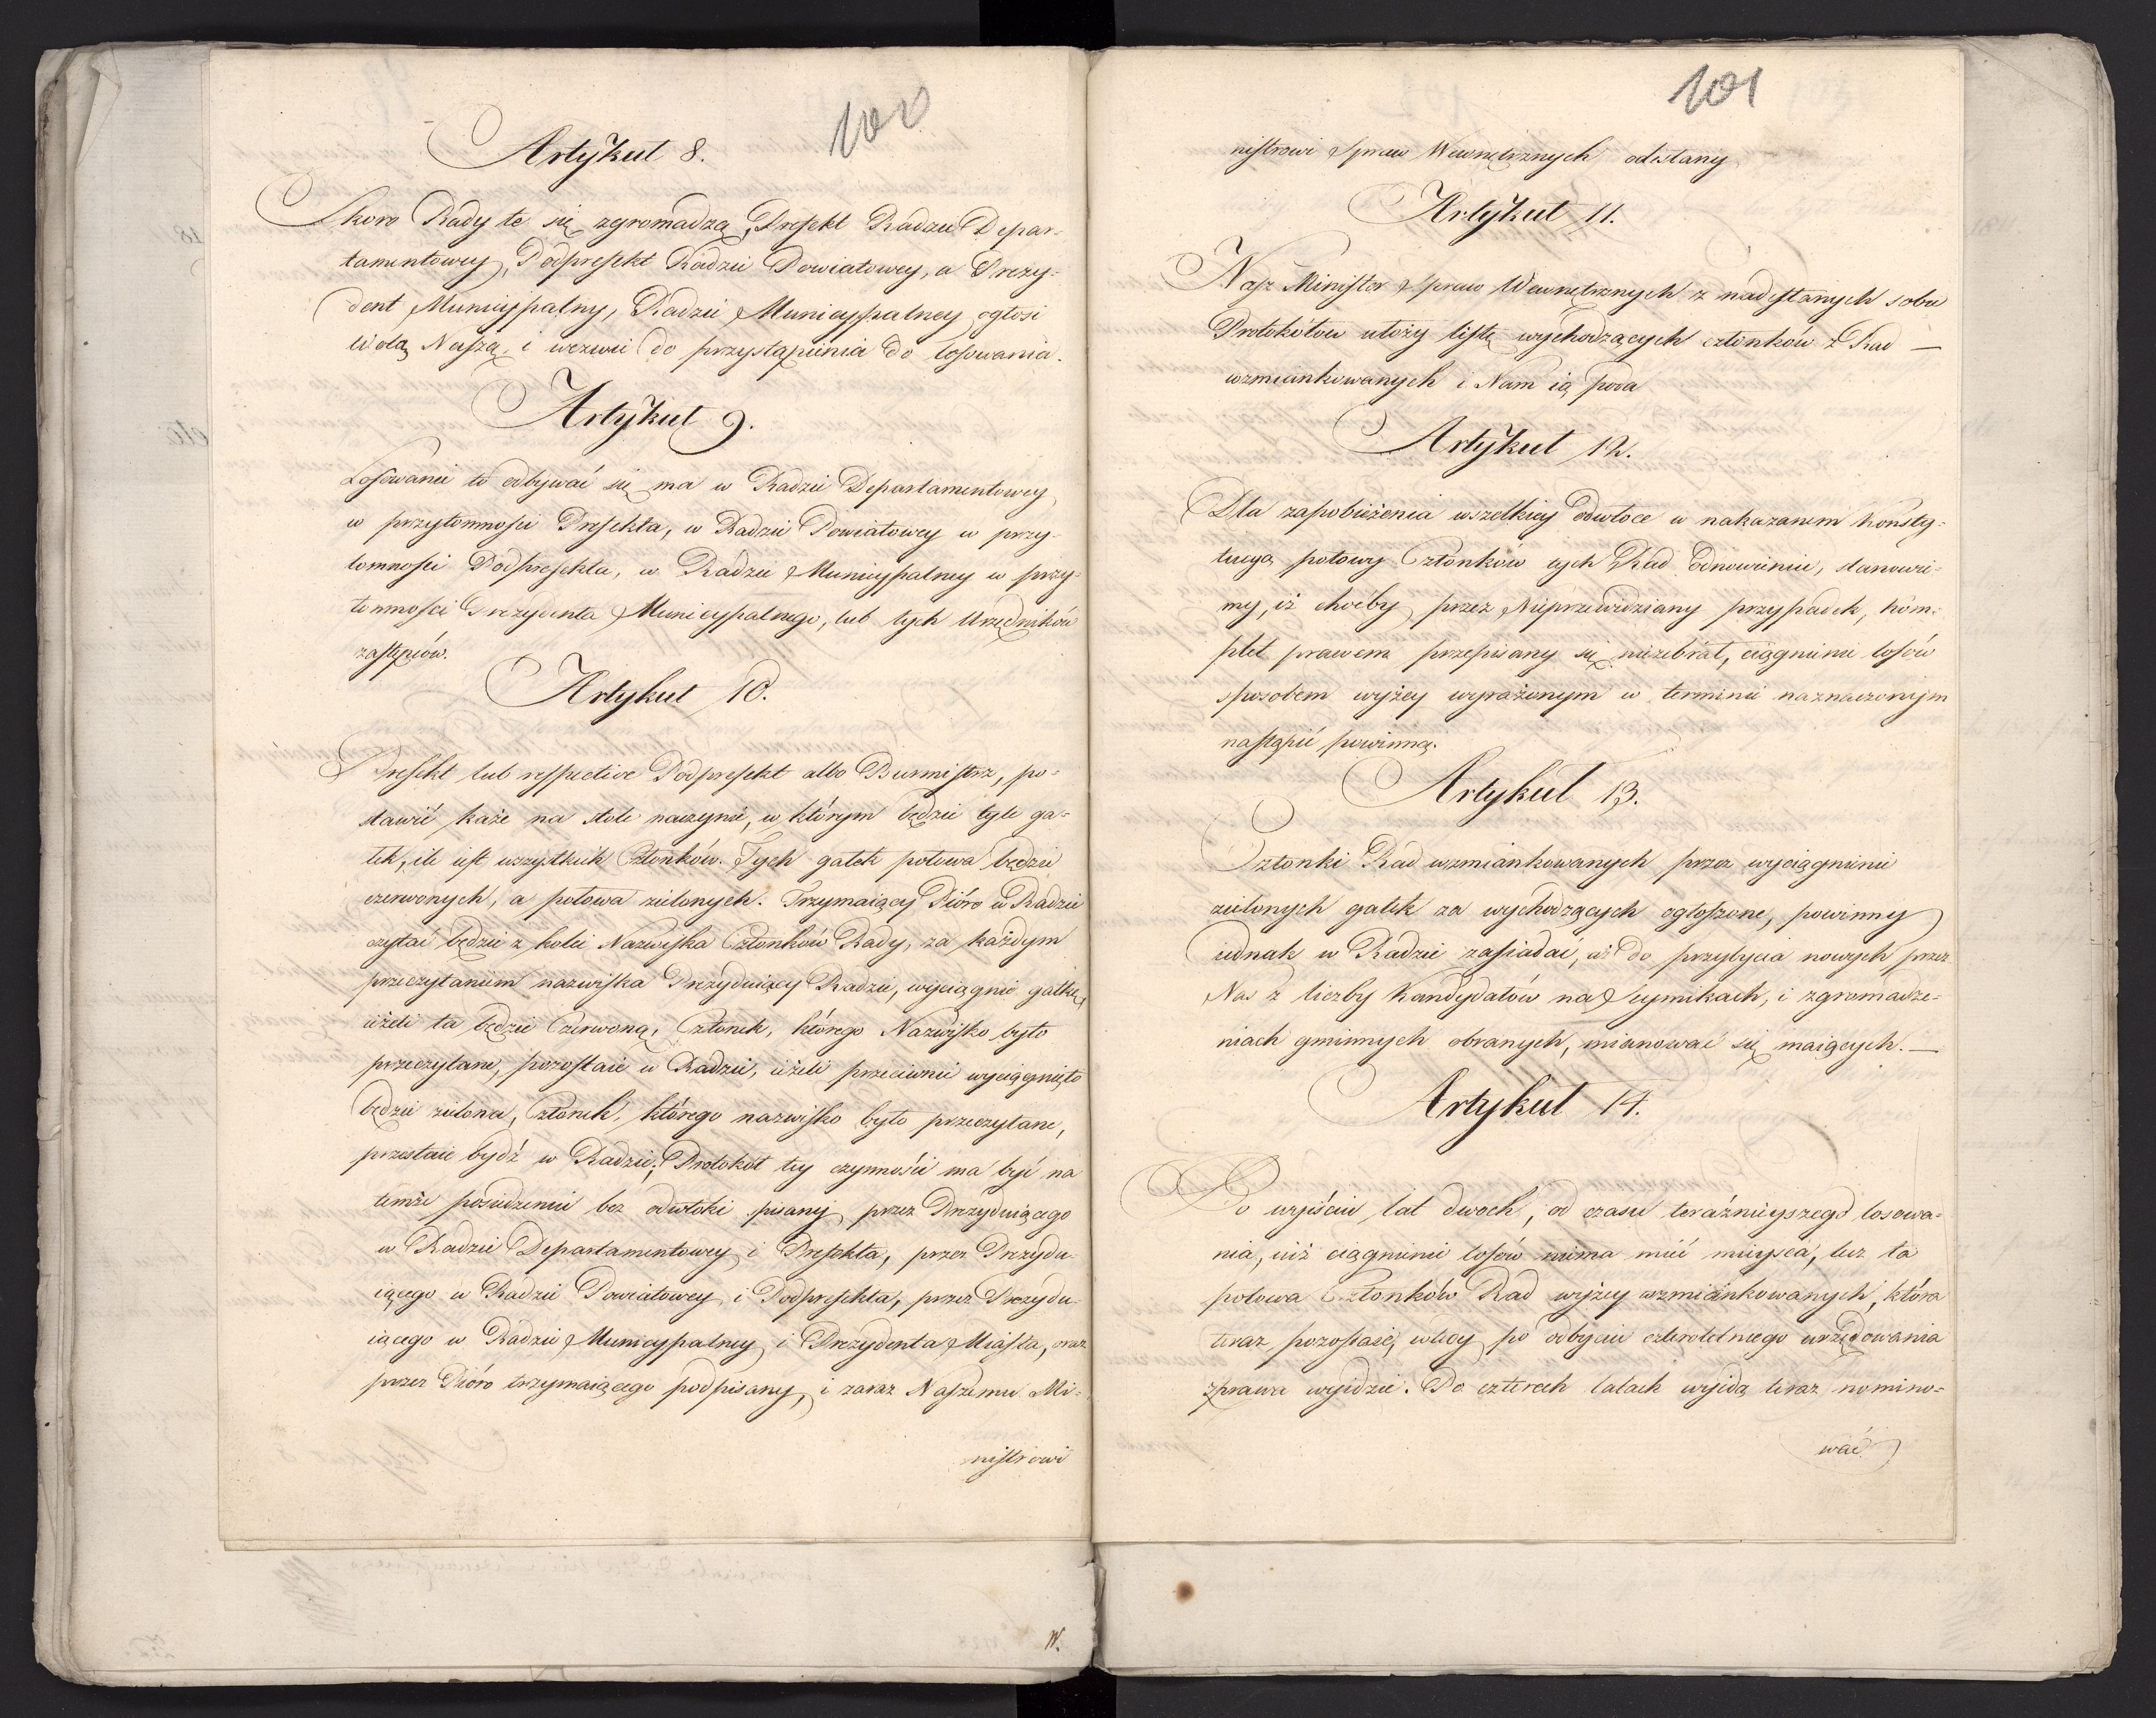 100
Artykuł 8.
Skoro Rady te się zgromadzą, Prefekt Radzie Depar-
tamentowey, Podprefekt Radzie Powiatowey, a Prezy-
dent Municypalny, Radzie Municypalney ogłosi
Wolą Naszą, i wezwie do przystąpienia do losowania.
Artykuł 9.
Losowanie to odbywać się ma w Radzie Departamentowey
w przytomności Prefekta, w Radzie Powiatowey w przy-
tomności Podprefekta, w Radzie Municypalney w przy-
tomności Prezydenta Municypalnego, lub tych Urzędników
zastępców.
Artykuł 10.
Prefekt lub respective Podprefekt albo Burmistrz, po-
stawić każe na stole naczynie, w którym będzie tyle ga-
łek, ile iest wszystkich Członków. Tych gałek połowa będzie
czerwonych, a połowa zielonych. Trzymaiący Pióro w Radzie
czytać będzie z kolei Nazwiska Członków Rady, za każdym
przeczytaniem nazwiska Prezyduiący Radzie, wyciągnie gałkę,
ieżeli ta będzie Czerwoną, Członek, którego Nazwisko było
przeczytane, pozostaie w Radzie, ieżeli przeciwnie wyciągnięto
będzie zielona, Członek, którego nazwisko było przeczytane,
przestaie bydź w Radzie; Protokół tey czynności ma być na
temże posiedzeniu bez odwłoki pisany, przez Prezyduiącego
w Radzie Departamentowey, i Prefekta, przez Prezydu-
iącego w Radzie Powiatowey, i Podprefekta, przez Prezydu-
iącego w Radzie Municypalney, i Prezydenta Miasta, oraz
przez Pióro trzymaiącego podpisany, i zaraz Naszemu Mi-
nistrowi
W.
101
nistrowi Spraw Wewnętrznych odesłany
Artykuł 11.
Nasz Minister Spraw Wewnętrznych z nadesłanych sobie
Protokółów ułoży listę wychodzących członków z Rad —
wzmiankowanych i Nam ią poda
Artykuł 12.
Dla zapobieżenia wszelkiey odwłoce w nakazanem konsty-
tucyą połowy Członków tych Rad Odnowieniu, stanowi-
my, iż choćby przez Nieprzewidziany przypadek, kom-
plet prawem przepisany się niezebrał, ciągnienie losów
sposobem wyżey wyrażonym w terminie naznaczonym
nastąpić powinno.
Artykuł 13.
Członki Rad wzmiankowanych przez wyciągnienie
zielonych gałek za wychodzących ogłoszone, powinny
iednak w Radzie zasiadać, aż do przybycia nowych przez
Nas z liczby Kandydatów na Seymikach, i zgromadze-
niach gminnych obranych, mianować się maiących. —
Artykuł 14.
Po wyiściu lat dwoch, od czasu teraźnieyszego losowa-
nia, iuż ciągnienie losów niema mieć mieysca, lecz ta
połowa Członków Rad wyżey wzmiankowanych, która
teraz pozostaie, wtedy po odbyciu czteroletniego urzędowania
z prawa wyidzie. Po czterech latach wyidą teraz nomino-
wać